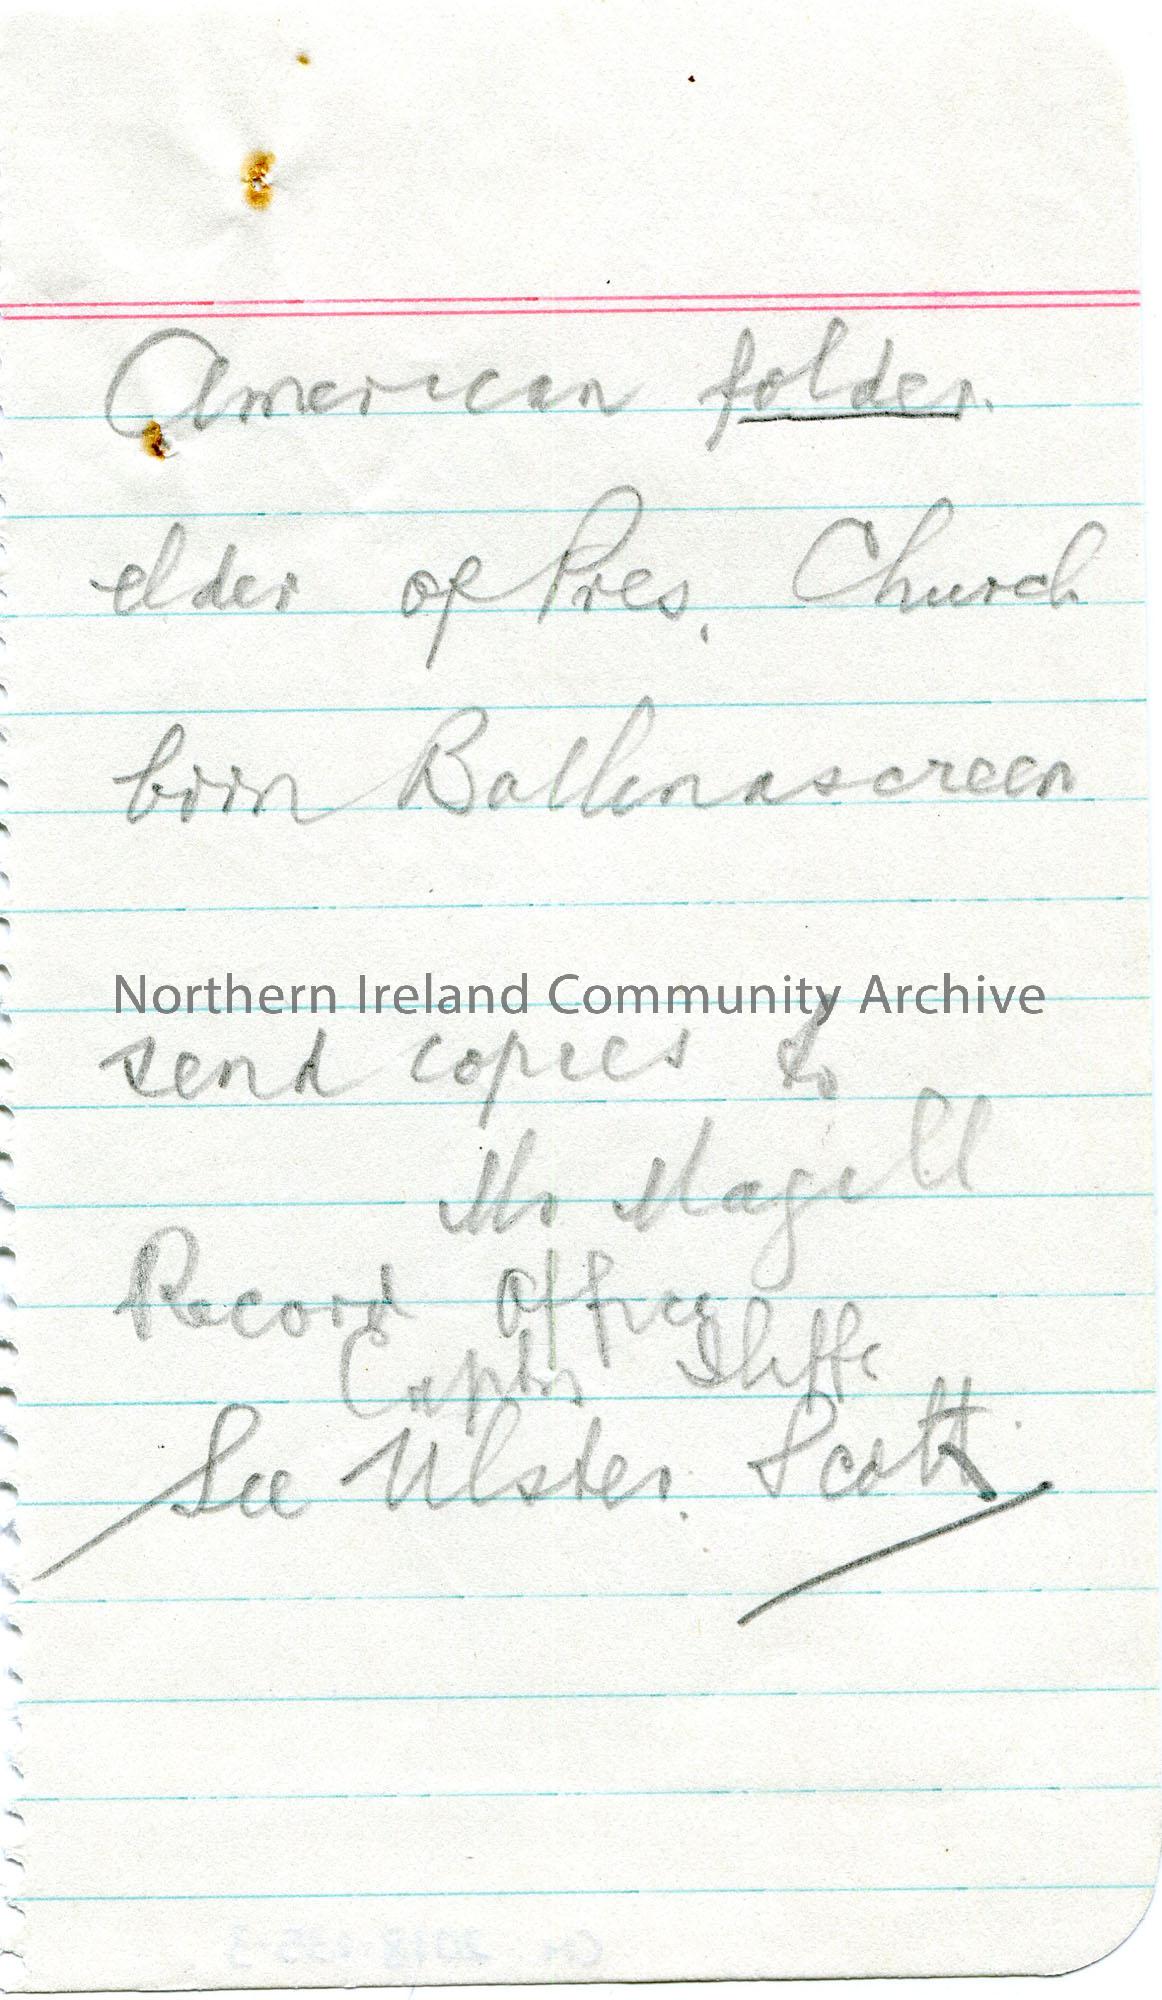 American folder.
elder of Pres. Church
born Ballinascreen
Northern Ireland Community Archive
send copies to
Mr Magill
Record Office
Captn Iliffe
See Ulster Scott
CM 2018 135-3